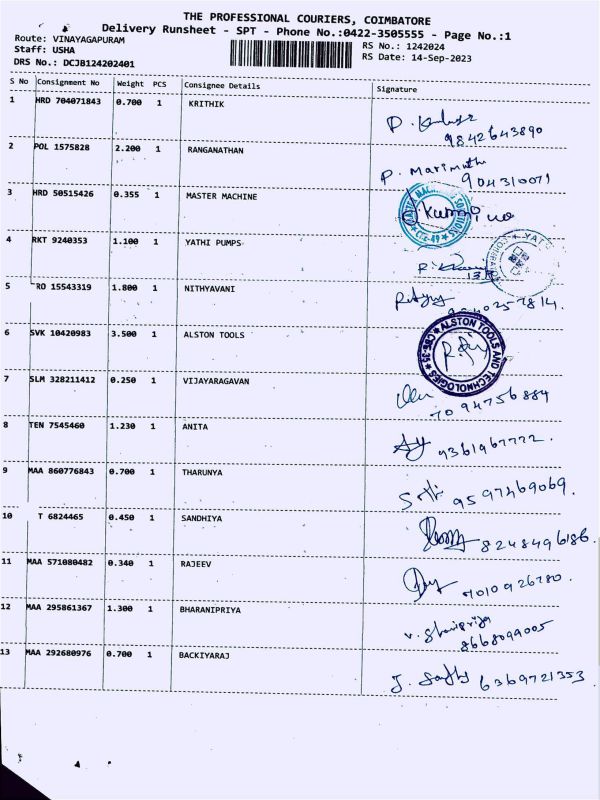 THE PROFESSIONAL COURIERS, COIMBATORE
Delivery Runsheet - SPT - Phone No.:0422-3505555 - Page No.:1
Route: VINAYAGAPURAM
Staff: USHA
DRS No.: DCJB124202401
RS No.: 1242024
RS Date: 14-Sep-2023
S No Consignment No Weight PCS Consignee Details Signature
1 HRD 704071843 0.700 1 KRITHIK
9842643890
2 POL 1575828 2.200 1 RANGANATHAN
P. Marimuthu
904310071
3 HRD 50515426 0.355 1 MASTER MACHINE
4 RKT 9240353 1.100 1 YATHI PUMPS
5 RO 15543319 1.800 1 NITHYAVANI
6 SVK 10420983 3.500 1 ALSTON TOOLS
ALSTON TOOLS AND TECHNOLOGIES ★ CBE-35 ★
7 SLM 328211412 0.250 1 VIJAYARAGAVAN
7094756884
8 TEN 7545460 1.230 1 ANITA
9361967772.
9 MAA 860776843 0.700 1 THARUNYA
9597469069.
10 T 6824465 0.450 1 SANDHIYA
8248496186.
11 MAA 571080482 0.340 1 RAJEEV
7010926780.
12 MAA 295861367 1.300 1 BHARANIPRIYA
8668099005
13 MAA 292680976 0.700 1 BACKIYARAJ
6369721353.